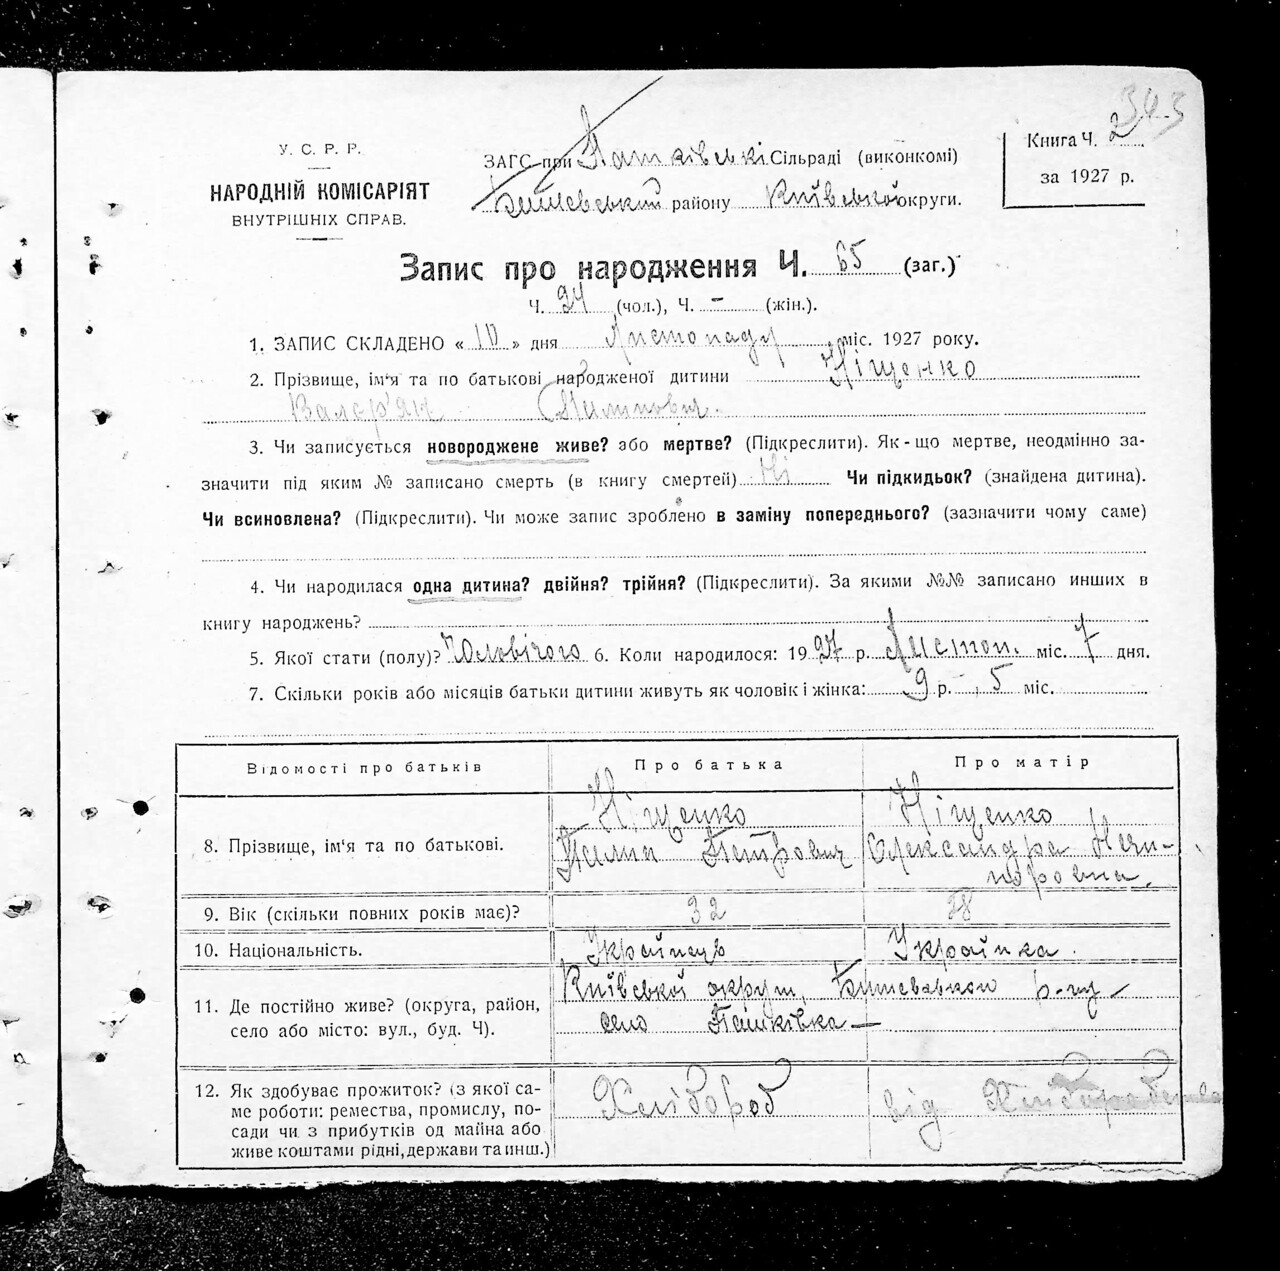 343
У. С. Р. Р.
НАРОДНІЙ КОМІСАРІЯТ
ВНУТРІШНІХ СПРАВ.
ЗАГС при Пашківські Сільраді (виконкомі)
Бишевський району Київської округи.
Книга Ч. 2
за 1927 р.
Запис про народження Ч. 65 (заг.)
Ч. 24 (чол.), Ч. – (жін.).
1. ЗАПИС СКЛАДЕНО « 10 » дня Листопаду міс. 1927 року.
2. Прізвище, ім'я та по батькові народженої дитини Ніщенко
Валер'ян Пилипович.
3. Чи записується новороджене живе? або мертве? (Підкреслити). Як-що мертве, неодмінно за-
значити під яким № записано смерть (в книгу смертей) Ні Чи підкидьок? (знайдена дитина).
Чи всиновлена? (Підкреслити). Чи може запис зроблено в заміну попереднього? (зазначити чому саме)
4. Чи народилася одна дитина? двійня? трійня? (Підкреслити). За якими №№ записано инших в
книгу народжень?
5. Якої стати (полу)? Чоловічого 6. Коли народилося: 1927 р. Листоп. міс. 7 дня.
7. Скільки років або місяців батьки дитини живуть як чоловік і жінка: 9 р. –, 5 міс.
Відомості про батьків Про батька Про матір
8. Прізвище, ім'я та по батькові.
Ніщенко
Пилип Петрович
Ніщенко
Олександра Ничи-
поровна.
9. Вік (скільки повних років має)? 32 28
10. Національність. Українець Українка.
11. Де постійно живе? (округа, район,
село або місто: вул., буд. Ч).
Київської округи, Бишевського р-ну –
село Пашківка –
12. Як здобуває прожиток? (з якої са-
ме роботи: ремества, промислу, по-
сади чи з прибутків од майна або
живе коштами рідні, держави та инш.)
Хлібороб
від Хліборобства